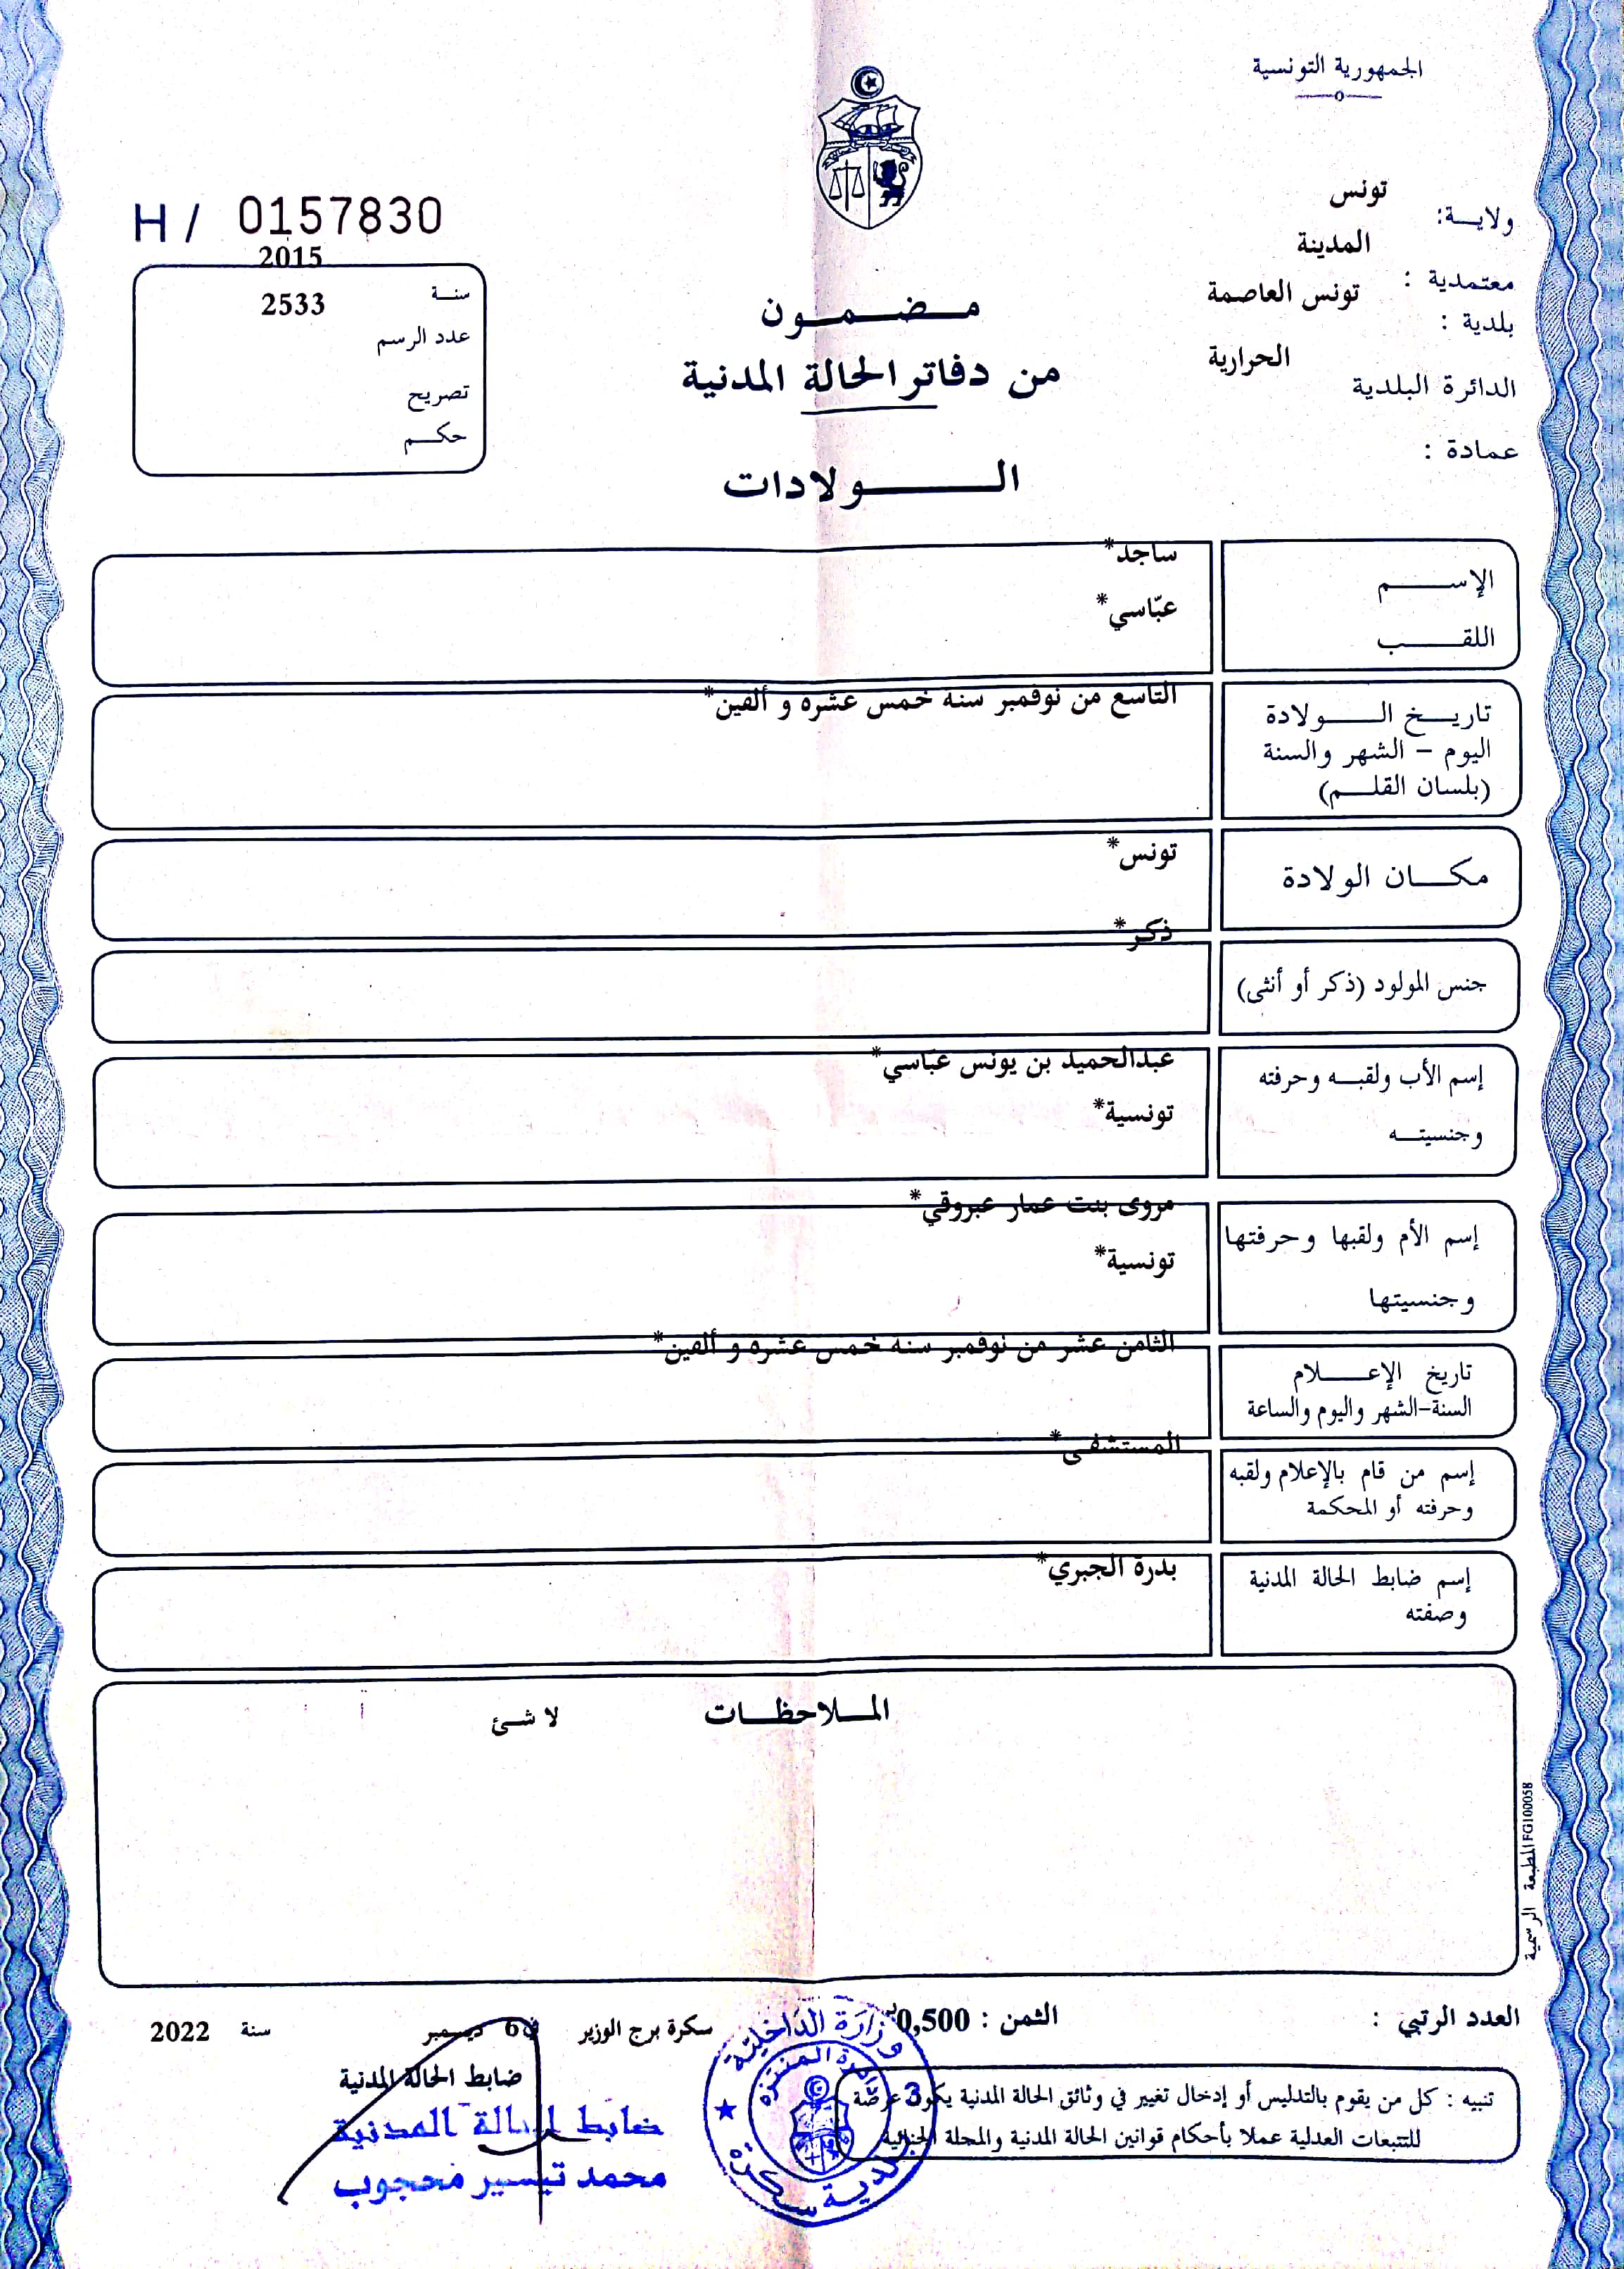 الجمهورية التونسية
ولاية: تونس
معتمدية : المدينة
بلدية : تونس العاصمة
الدائرة البلدية الحرارية
عمادة :
H / 0157830
سنة 2015
عدد الرسم 2533
تصريح
حكم
مضمون
من دفاتر الحالة المدنية
الولادات
الإسم ساجد*
اللقب عبّاسي*
تاريخ الولادة التاسع من نوفمبر سنه خمس عشره و ألفين*
اليوم - الشهر والسنة
(بلسان القلم)
مكان الولادة تونس*
جنس المولود (ذكر أو أنثى) ذكر*
إسم الأب ولقبه وحرفته عبدالحميد بن يونس عبّاسي*
وجنسيته تونسية*
إسم الأم ولقبها وحرفتها مروى بنت عمار عبروقي*
وجنسيتها تونسية*
تاريخ الإعلام الثامن عشر من نوفمبر سنه خمس عشره و ألفين*
السنة-الشهر واليوم والساعة
إسم من قام بالإعلام ولقبه المستشفى*
وحرفته أو المحكمة
إسم ضابط الحالة المدنية بدرة الجبري*
وصفته
الملاحظات لا شئ
المطبعة الرسمية FG100058
العدد الرتبي :
الثمن : 0,500
سكرة برج الوزير في 6 ديسمبر سنة 2022
ضابط الحالة المدنية
ضابط الحالة المدنية
محمد تيسير محجوب
وزارة الداخلية
بلدية سكرة
دائرة المنتزه
3
تنبيه : كل من يقوم بالتدليس أو إدخال تغيير في وثائق الحالة المدنية يكون عرضة
للتتبعات العدلية عملا بأحكام قوانين الحالة المدنية والمجلة الجنائية